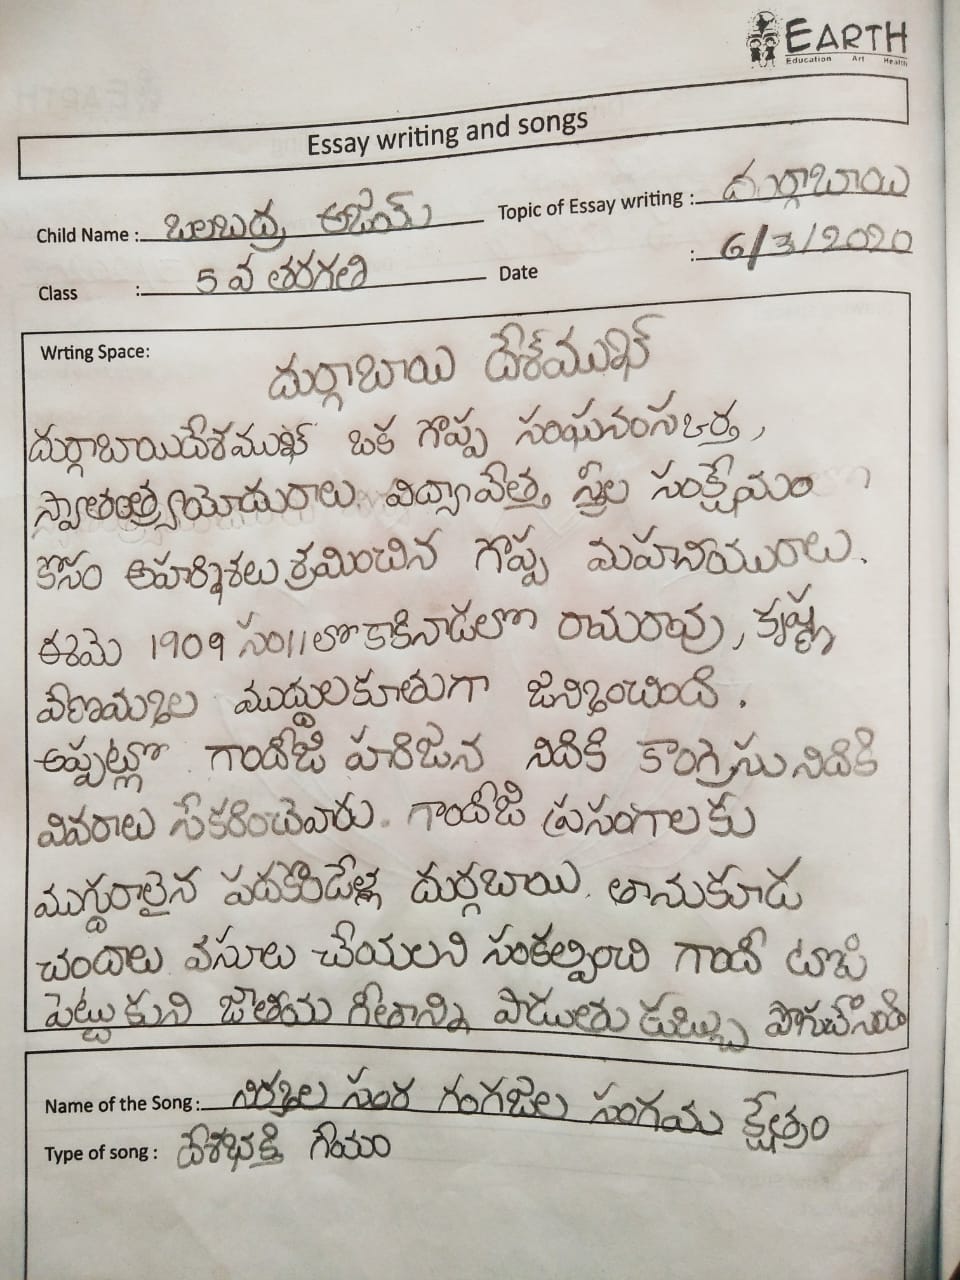 EARTH
Education Art Health
Essay writing and songs
Child Name : బలబద్ర అజయ్
Topic of Essay writing : దుర్గాబాయి
Class : 5 వ తరగతి
Date : 6/3/2020
Wrting Space:
దుర్గాబాయి దేశ్‌ముఖ్
దుర్గాబాయిదేశముఖ్ ఒక గొప్ప సంఘసంస్కర్త,
స్వాతంత్ర్యయోదురాలు. విద్యావేత్త, స్త్రీల సంక్షేమం
కోసం అహర్నిశలు శ్రమించిన గొప్ప మహనియురాలు.
ఈమె 1909 సం॥లో కాకినాడలో రామారావు, కృష్ణ
వేణమ్మల ముద్దులకూతురుగా జన్మించింది.
అప్పట్లో గాందీజి హరిజన నిదికి కాంగ్రెసు నిదికి
వివరాలు సేకరించెవారు. గాందీజి ప్రసంగాలకు
ముగ్దురాలైన పదకొండేళ్ల దుర్గబాయి. తానుకూడ
చందాలు వసూలు చేయలని సంకల్పించి గాందీ టోపి
పెట్టుకుని జాతీయ గీతాన్ని పాడుతు డబ్బు పొగుచేసింది
Name of the Song: నిర్మల సుర గంగజల సంగమ క్షేత్రం
Type of song : దేశభక్తి గేయం